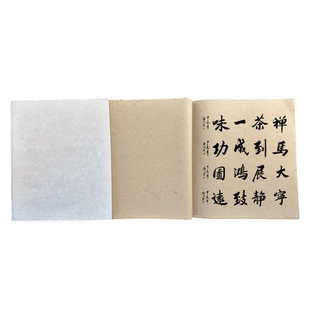 禅茶一味
馬到成功
大展鸿圖
寧静致遠